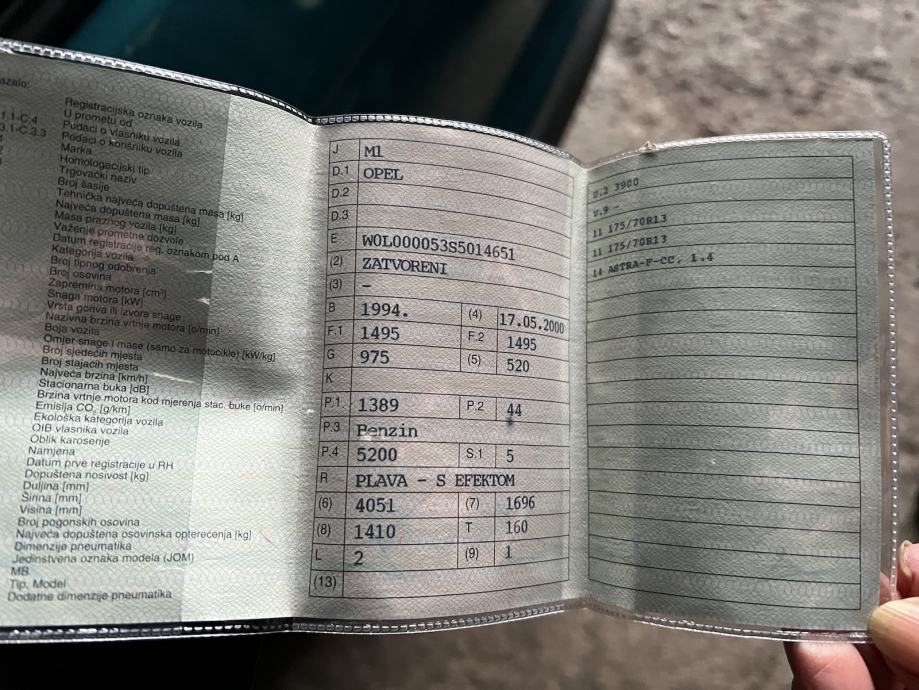 azalo:
Registracijska oznaka vozila
U prometu od
1.1-C.4 Podaci o vlasniku vozila
3.1-C.3.3 Podaci o korisniku vozila
Marka
Homologacijski tip
Trgovački naziv
Broj šasije
Tehnička najveća dopuštena masa [kg]
Najveća dopuštena masa [kg]
Masa praznog vozila [kg]
Važenje prometne dozvole
Datum registracije reg. oznakom pod A
Kategorija vozila
Broj tipnog odobrenja
Broj osovina
Zapremina motora [cm³]
Snaga motora [kW]
Vrsta goriva ili izvora snage
Nazivna brzina vrtnje motora [o/min]
Boja vozila
Omjer snage i mase (samo za motocikle) [kW/kg]
Broj sjedećih mjesta
Broj stajaćih mjesta
Najveća brzina [km/h]
Stacionarna buka [dB]
Brzina vrtnje motora kod mjerenja stac. buke [o/min]
Emisija CO₂ [g/km]
Ekološka kategorija vozila
OIB vlasnika vozila
Oblik karoserije
Namjena
Datum prve registracije u RH
Dopuštena nosivost [kg]
Duljina [mm]
Širina [mm]
Visina [mm]
Broj pogonskih osovina
Najveća dopuštena osovinska opterećenja [kg]
Dimenzije pneumatika
Jedinstvena oznaka modela (JOM)
MB
Tip, Model
Dodatne dimenzije pneumatika
J M1
D.1 OPEL
D.2
D.3
E WOL000053S5014651
(2) ZATVORENI
(3) –
B 1994. (4) 17.05.2000
F.1 1495 F.2 1495
G 975 (5) 520
K
P.1 1389 P.2 44
P.3 Benzin
P.4 5200 S.1 5
R PLAVA – S EFEKTOM
(6) 4051 (7) 1696
(8) 1410 T 160
L 2 (9) 1
(13)
U.2 3900
V.9 -
11 175/70R13
11 175/70R13
14 ASTRA-F-CC, 1.4